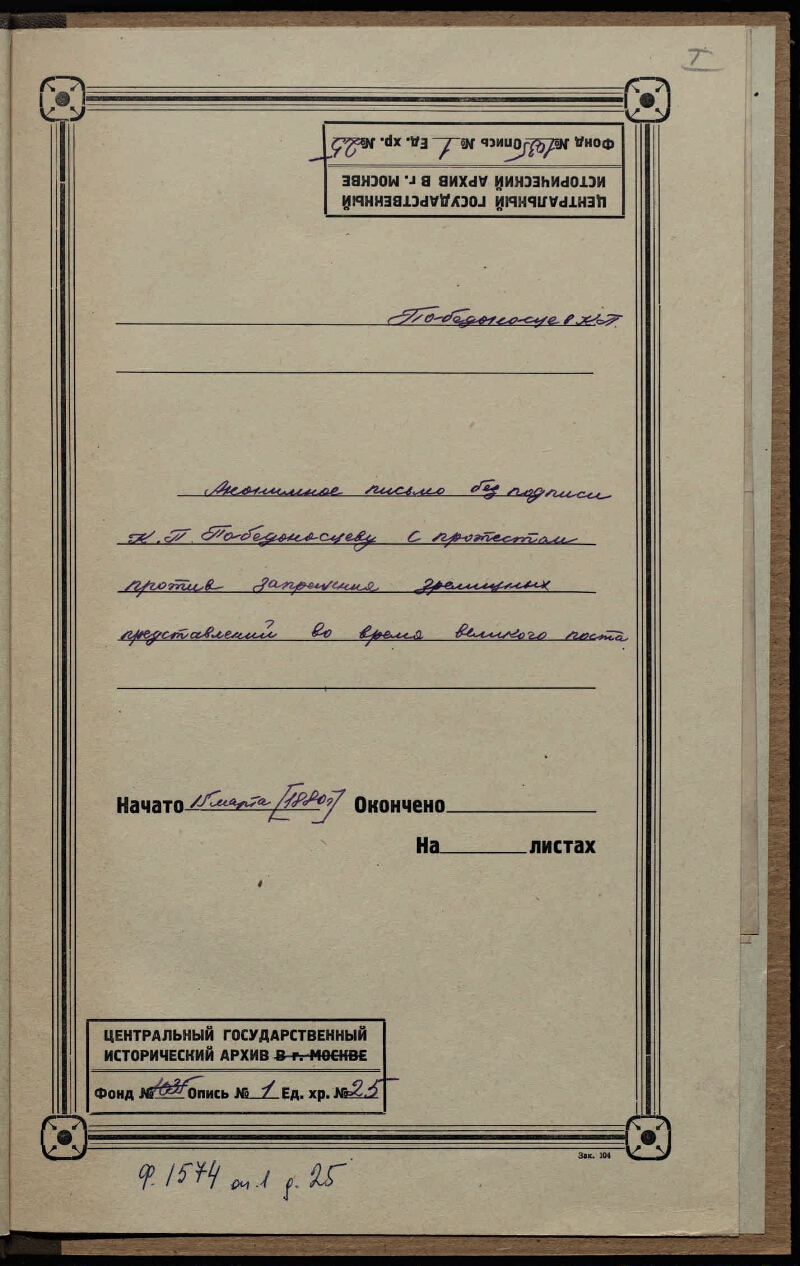 I
ЦЕНТРАЛЬНЫЙ ГОСУДАРСТВЕННЫЙ
ИСТОРИЧЕСКИЙ АРХИВ В г. МОСКВЕ
Фонд № 1035 Опись № 1 Ед. хр. № 25
Победоносцев К.П.
Анонимное письмо без подписи
К. П. Победоносцеву с протестом
против запрещения зрелищных
представлений во время великого поста
Начато 15 марта [1880 г] Окончено
На листах
ЦЕНТРАЛЬНЫЙ ГОСУДАРСТВЕННЫЙ
ИСТОРИЧЕСКИЙ АРХИВ В г. МОСКВЕ
Фонд № 1035 Опись № 1 Ед. хр. № 25
Зак. 104
Ф. 1574 оп. 1 д. 25